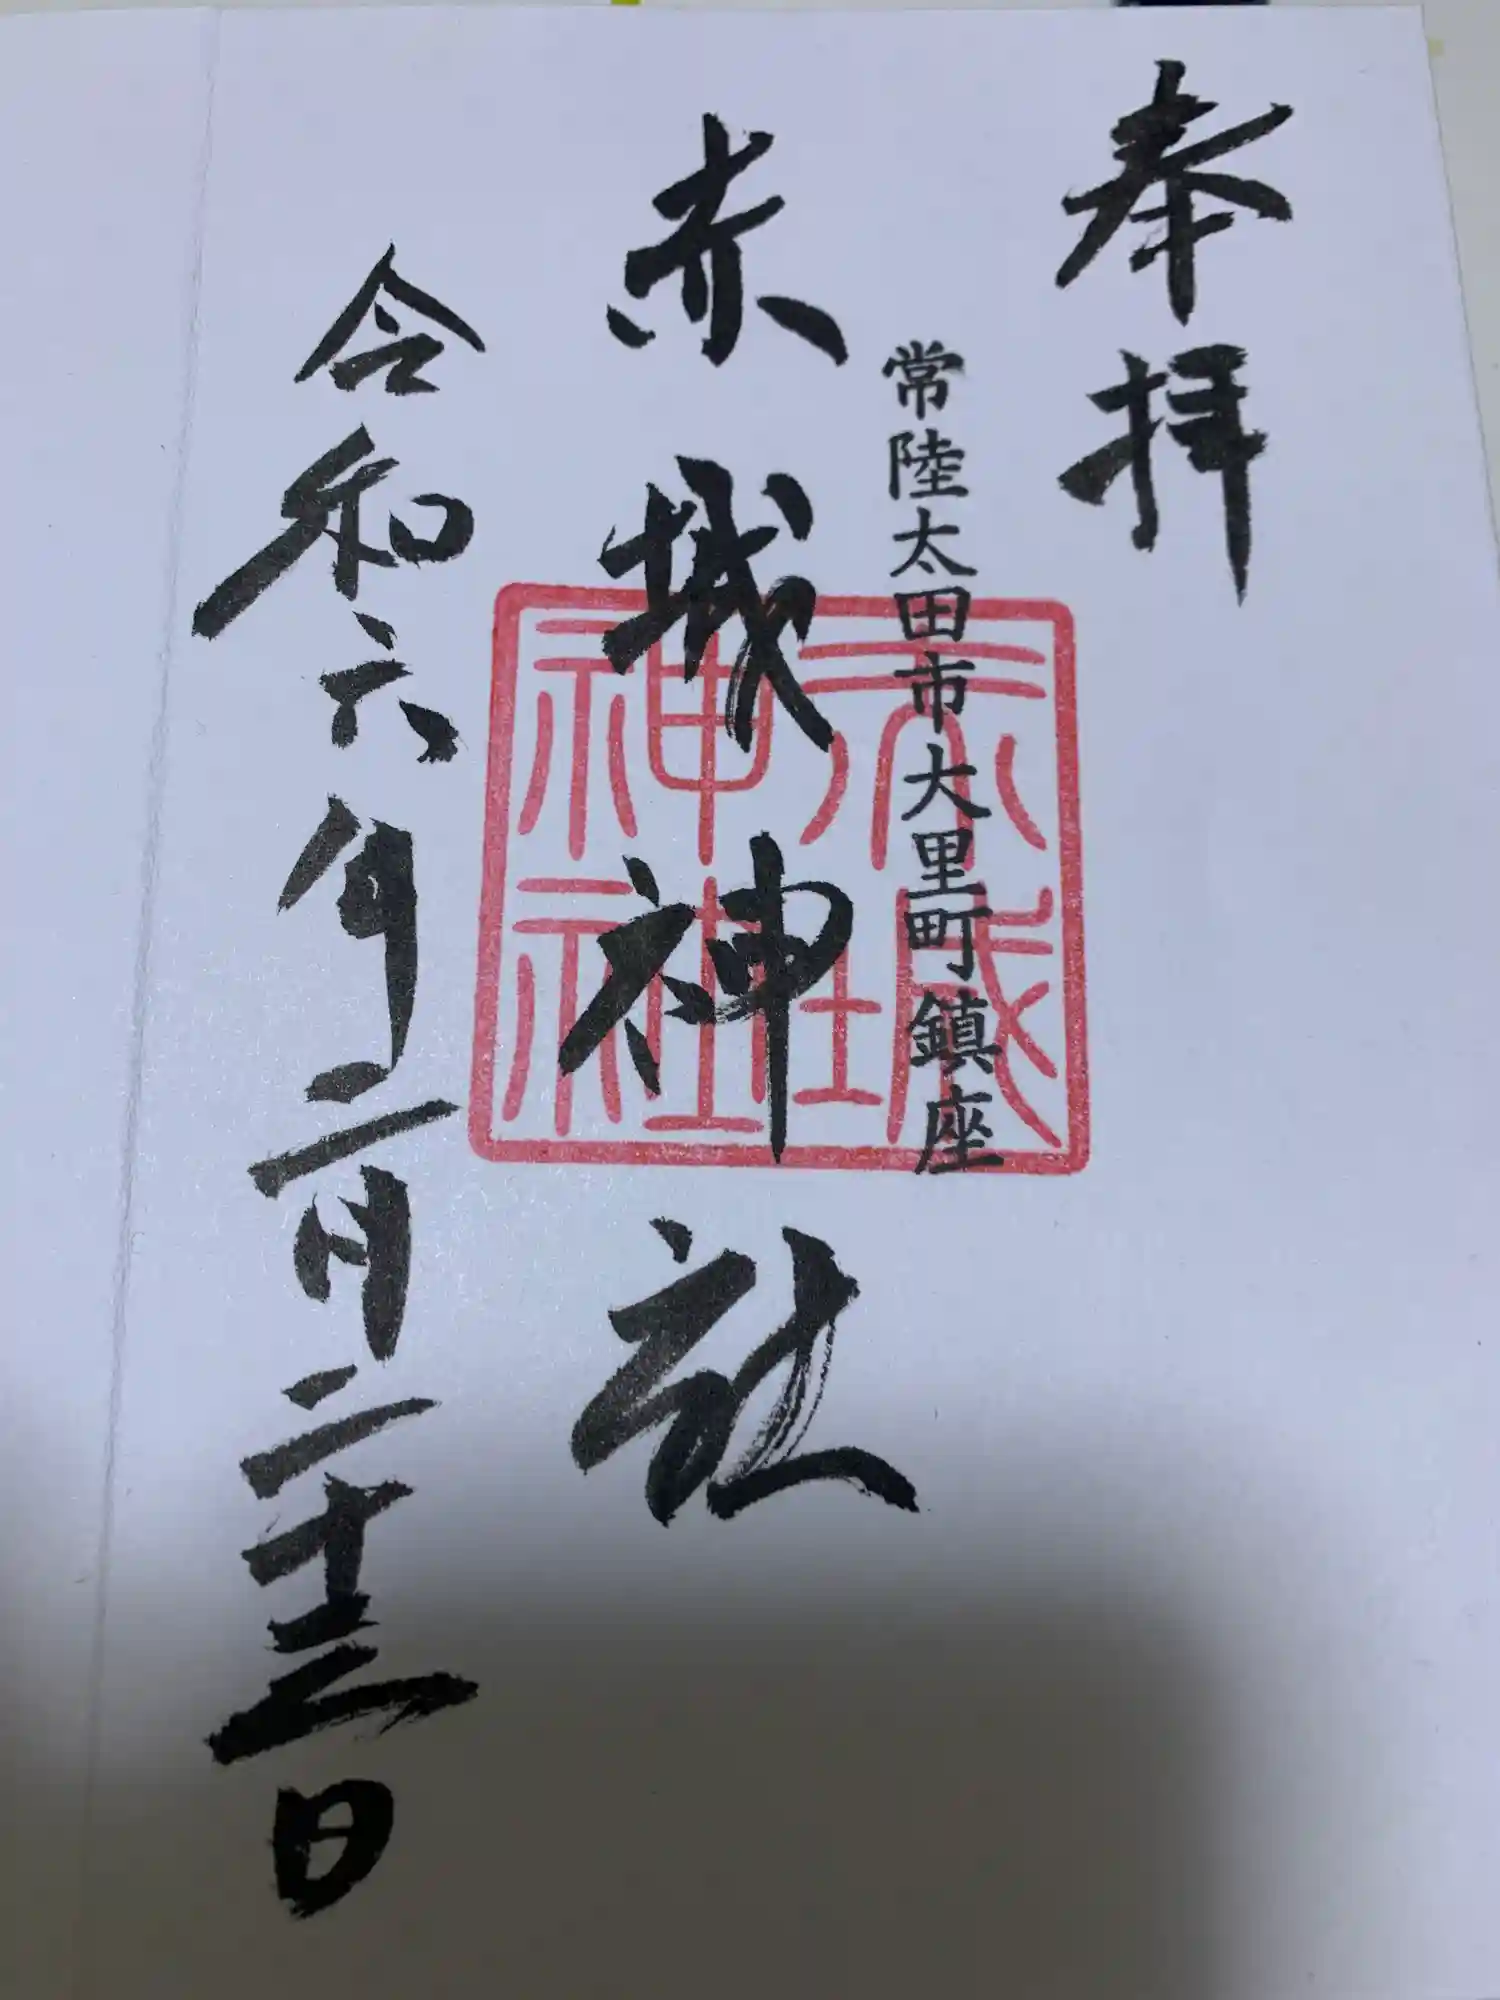 奉拝
常陸太田市大里町鎮座
赤城神社
令和六年二月二十三日
赤城
神社